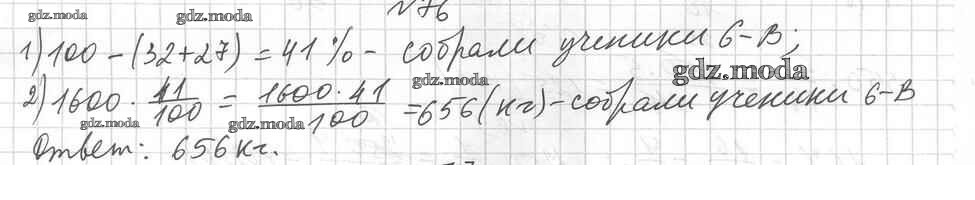 №76
gdz.moda gdz.moda gdz.moda
1) 100 - (32+27) = 41% - собрали ученики 6-В;
gdz.moda gdz.moda
2) 1600 · 41/100 = 1600 · 41/100 = 656 (кг) - собрали ученики 6-В
gdz.moda gdz.moda
Ответ: 656 кг.
gdz.moda gdz.moda